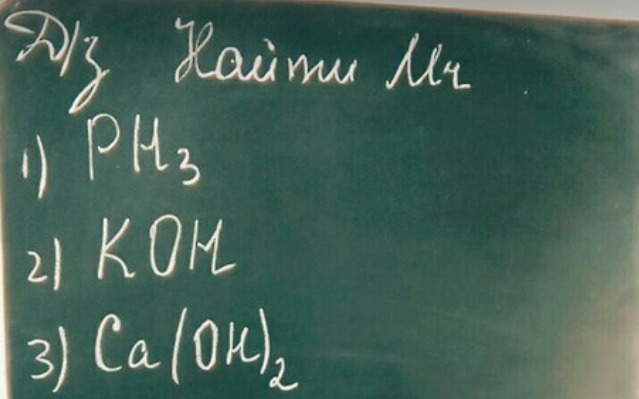 Д/з Найти Mr
1) PH₃
2) KOH
3) Ca(OH)₂